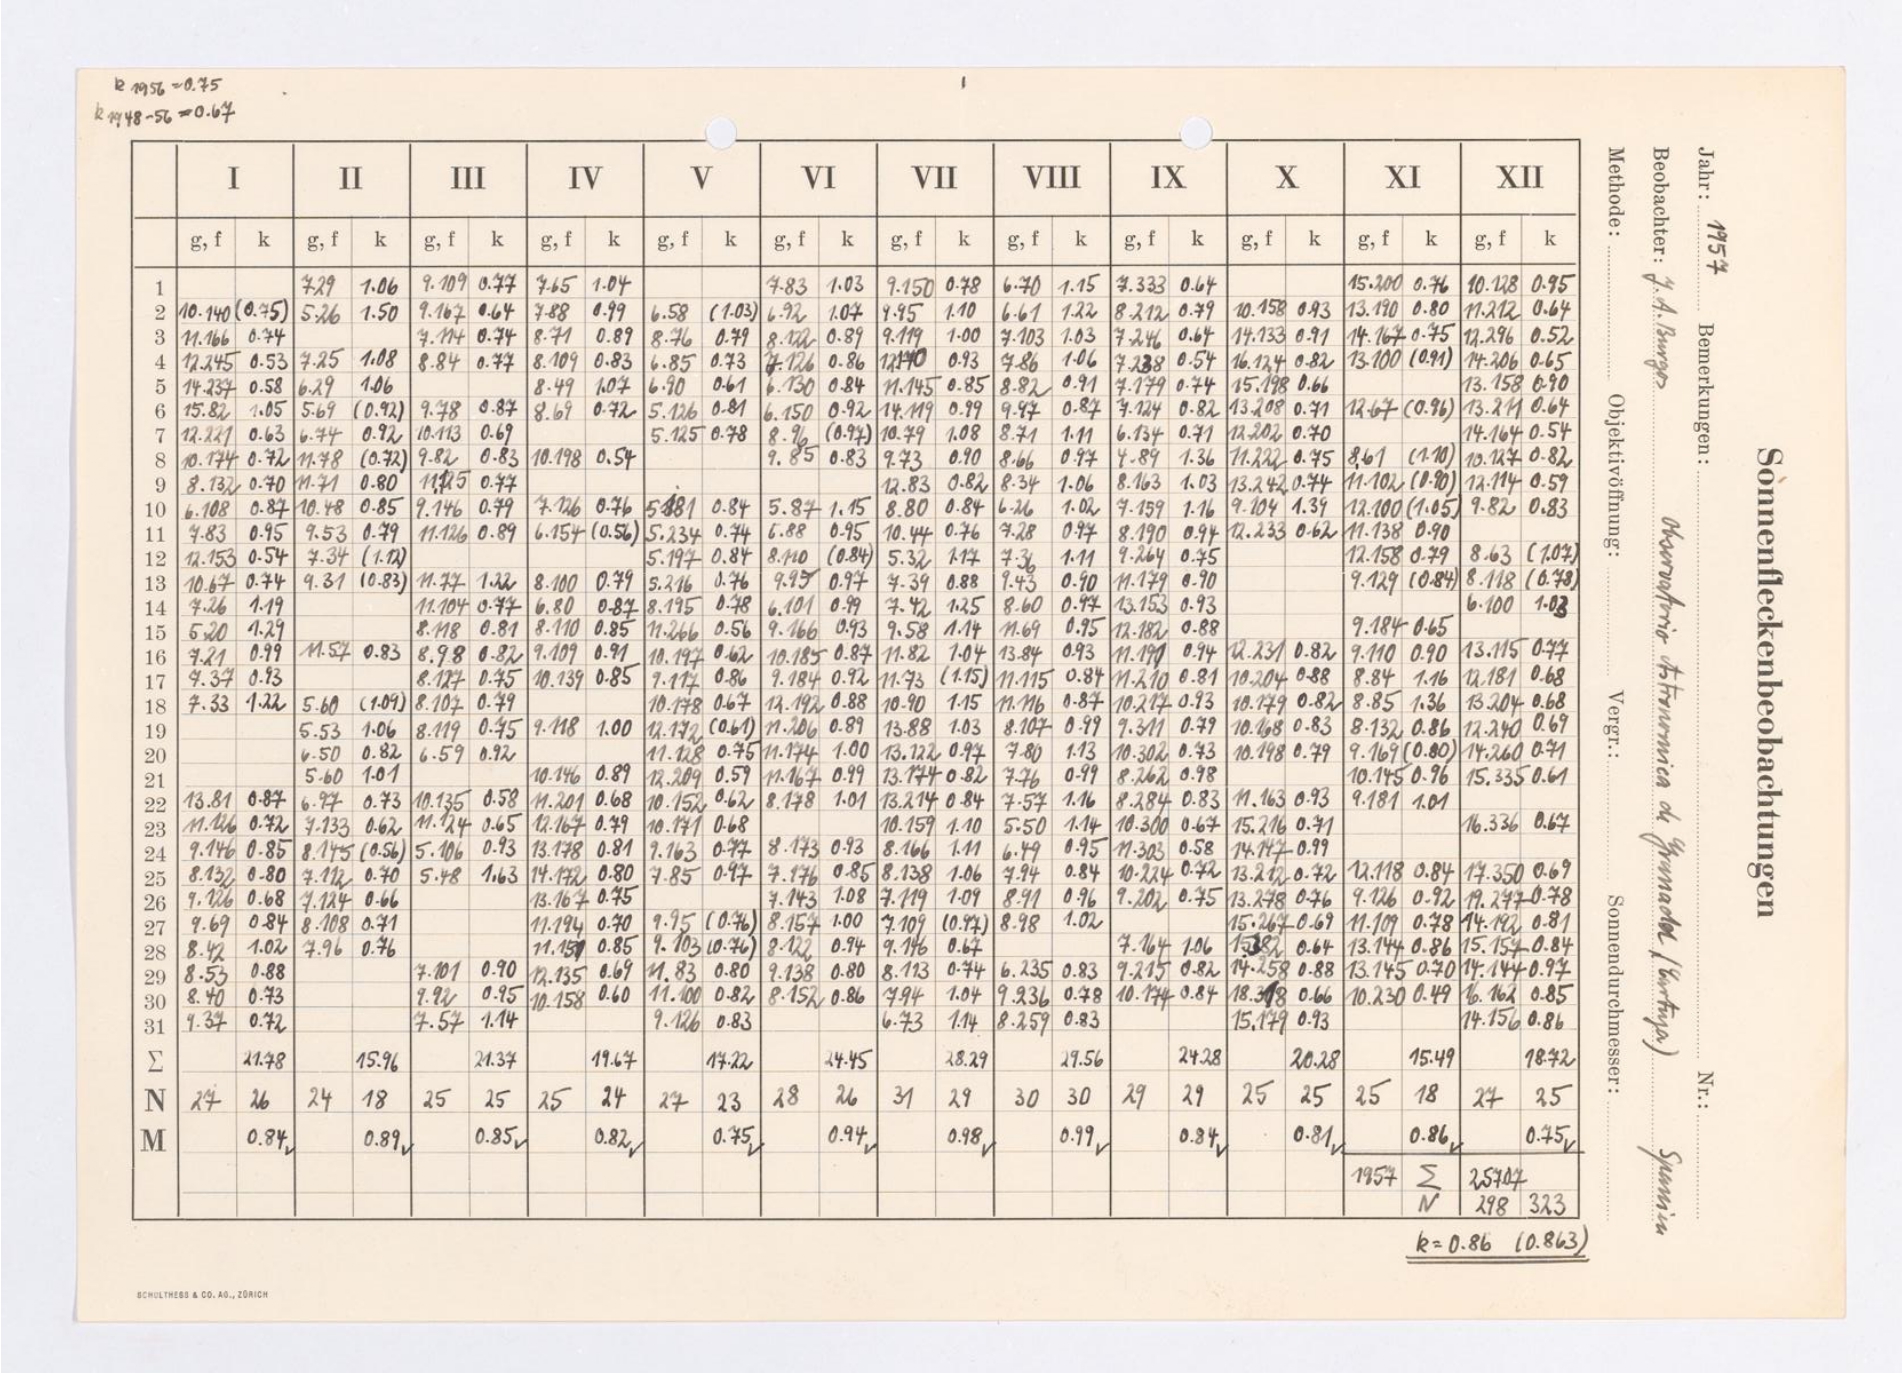 k 1956 = 0.75
k 1948-56 = 0.67
I II III IV V VI VII VIII IX X XI XII
g, f k g, f k g, f k g, f k g, f k g, f k g, f k g, f k g, f k g, f k g, f k g, f k
1 7.29 1.06 9.109 0.77 7.65 1.04 7.83 1.03 9.150 0.78 6.70 1.15 7.333 0.64 15.200 0.76 10.128 0.95
2 10.140 (0.75) 5.26 1.50 9.167 0.64 7.88 0.99 6.58 (1.03) 6.92 1.07 9.95 1.10 6.61 1.22 8.212 0.79 10.158 0.93 13.190 0.80 11.212 0.64
3 11.166 0.74 7.114 0.74 8.71 0.89 8.76 0.79 8.122 0.89 9.119 1.00 7.103 1.03 7.246 0.64 14.133 0.91 14.167 0.75 12.296 0.52
4 12.245 0.53 7.25 1.08 8.84 0.77 8.109 0.83 6.85 0.73 7.126 0.86 12.170 0.93 7.86 1.06 7.238 0.54 16.124 0.82 13.100 (0.91) 14.206 0.65
5 14.237 0.58 6.29 1.06 8.49 1.07 6.90 0.61 6.130 0.84 11.145 0.85 8.82 0.91 7.179 0.74 15.198 0.66 13.158 0.90
6 15.82 1.05 5.69 (0.92) 9.78 0.87 8.69 0.72 5.126 0.81 6.150 0.92 14.119 0.99 9.97 0.87 7.124 0.82 13.208 0.71 12.67 (0.96) 13.211 0.64
7 12.221 0.63 6.74 0.92 10.113 0.69 5.125 0.78 8.96 (0.97) 10.79 1.08 8.71 1.11 6.134 0.71 12.202 0.70 14.164 0.54
8 10.174 0.72 11.78 (0.72) 9.82 0.83 10.198 0.54 9.85 0.83 9.73 0.90 8.66 0.97 4.89 1.36 11.222 0.75 8.61 (1.10) 10.127 0.82
9 8.132 0.70 11.71 0.80 11.125 0.77 12.83 0.82 8.34 1.06 8.163 1.03 13.242 0.74 11.102 (0.90) 12.114 0.59
10 6.108 0.87 10.48 0.85 9.146 0.79 7.126 0.76 5.181 0.84 5.87 1.15 8.80 0.84 6.26 1.02 7.159 1.16 9.104 1.39 12.100 (1.05) 9.82 0.83
11 7.83 0.95 9.53 0.79 11.126 0.89 6.154 (0.56) 5.234 0.74 6.88 0.95 10.44 0.76 7.28 0.97 8.190 0.94 12.233 0.62 11.138 0.90
12 12.153 0.54 7.34 (1.12) 5.197 0.84 8.110 (0.84) 5.32 1.17 7.36 1.11 9.264 0.75 12.158 0.79 8.63 (1.07)
13 10.67 0.74 9.31 (0.83) 11.77 1.22 8.100 0.79 5.216 0.76 9.95 0.97 7.39 0.88 9.43 0.90 11.179 0.90 9.129 (0.84) 8.118 (0.78)
14 7.26 1.19 11.104 0.77 6.80 0.87 8.195 0.78 6.101 0.99 7.42 1.25 8.60 0.97 13.153 0.93 6.100 1.03
15 5.20 1.29 8.118 0.81 8.110 0.85 11.266 0.56 9.166 0.93 9.58 1.14 11.69 0.95 12.182 0.88 9.184 0.65
16 7.21 0.99 11.57 0.83 8.98 0.82 9.109 0.91 10.197 0.62 10.185 0.87 11.82 1.04 13.84 0.93 11.191 0.94 12.231 0.82 9.110 0.90 13.115 0.77
17 7.37 0.93 8.127 0.75 10.139 0.85 9.117 0.86 9.184 0.92 11.73 (1.15) 11.115 0.84 11.210 0.81 10.204 0.88 8.84 1.16 12.181 0.68
18 7.33 1.22 5.60 (1.09) 8.107 0.79 10.178 0.67 12.192 0.88 10.90 1.15 11.116 0.87 10.217 0.93 10.179 0.82 8.85 1.36 13.204 0.68
19 5.53 1.06 8.119 0.75 9.118 1.00 12.172 (0.61) 11.206 0.89 13.88 1.03 8.107 0.99 9.311 0.79 10.168 0.83 8.132 0.86 12.240 0.69
20 6.50 0.82 6.59 0.92 11.128 0.75 11.174 1.00 13.122 0.97 7.80 1.13 10.302 0.73 10.198 0.79 9.169 (0.80) 14.260 0.71
21 5.60 1.01 10.146 0.89 12.209 0.59 11.167 0.99 13.174 0.82 7.76 0.99 8.262 0.98 10.145 0.96 15.335 0.61
22 13.81 0.87 6.97 0.73 10.135 0.58 11.201 0.68 10.152 0.62 8.178 1.01 13.214 0.84 7.57 1.16 8.284 0.83 11.163 0.93 9.181 1.01
23 11.126 0.72 7.133 0.62 11.124 0.65 12.167 0.79 10.171 0.68 10.159 1.10 5.50 1.14 10.300 0.67 15.216 0.71 16.336 0.67
24 9.146 0.85 8.145 (0.56) 5.106 0.93 13.178 0.81 9.163 0.77 8.173 0.93 8.166 1.11 6.49 0.95 11.303 0.58 14.147 0.99
25 8.132 0.80 7.112 0.70 5.48 1.63 14.172 0.80 7.85 0.97 7.176 0.85 8.138 1.06 7.94 0.84 10.224 0.72 13.212 0.72 12.118 0.84 17.350 0.69
26 9.126 0.68 7.124 0.66 13.167 0.75 7.143 1.08 7.119 1.09 8.91 0.96 9.202 0.75 13.278 0.76 9.126 0.92 19.277 0.78
27 9.69 0.84 8.108 0.71 11.194 0.70 9.95 (0.76) 8.157 1.00 7.109 (0.97) 8.98 1.02 15.267 0.69 11.109 0.78 14.192 0.81
28 8.42 1.02 7.96 0.76 11.151 0.85 9.103 (0.76) 8.122 0.94 9.146 0.67 7.164 1.06 0.64 13.144 0.86 15.157 0.84
29 8.53 0.88 7.101 0.90 12.135 0.69 11.83 0.80 9.138 0.80 8.113 0.74 6.235 0.83 9.215 0.82 14.258 0.88 13.145 0.70 14.144 0.97
30 8.40 0.73 9.92 0.95 10.158 0.60 11.100 0.82 8.152 0.86 7.94 1.04 9.236 0.78 10.174 0.84 18.318 0.66 10.230 0.49 16.162 0.85
31 9.37 0.72 7.57 1.14 9.126 0.83 6.73 1.14 8.259 0.83 15.179 0.93 14.156 0.86
Σ 21.78 15.96 21.37 19.67 17.22 24.45 28.29 29.56 24.28 20.28 15.49 18.72
N 27 26 24 18 25 25 25 24 27 23 28 26 31 29 30 30 29 29 25 25 25 18 27 25
M 0.84 0.89 0.85 0.82 0.75 0.94 0.98 0.99 0.84 0.81 0.86 0.75
1957 Σ 257.07
N 298 323
k = 0.86 (0.863)
SCHULTHESS & CO. AG., ZÜRICH
Sonnenfleckenbeobachtungen
Jahr: 1957 Bemerkungen: Nr.:
Beobachter: J. A. Burgos Observatorio Astronomica de Granada (Cartuja) Spanien
Methode: Objektivöffnung: Vergr.: Sonnendurchmesser: